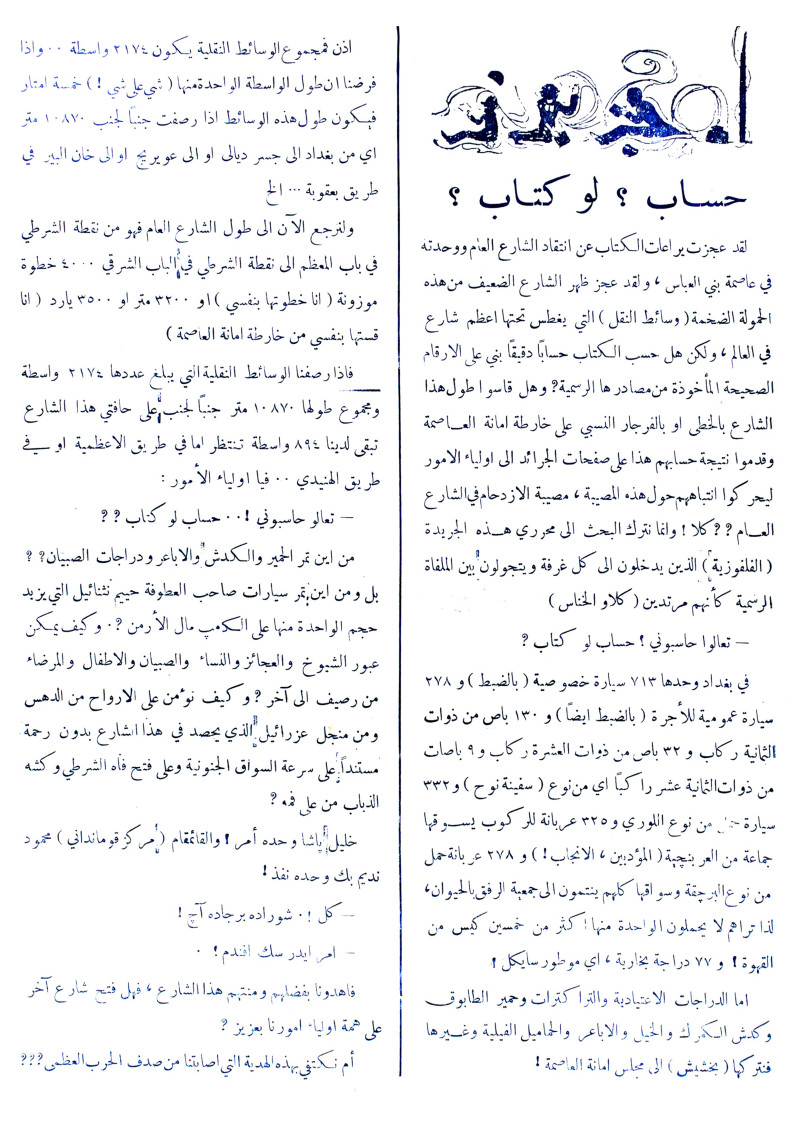 حساب ؟ لو كتاب ؟
لقد عجزت يراعات الكتاب عن انتقاد الشارع العام ووحدته
في عاصمة بني العباس ، ولقد عجز ظهر الشارع الضعيف من هذه
الحمولة الضخمة ( وسائط النقل ) التي يغطس تحتها اعظم شارع
في العالم ، ولكن هل حسب الكتاب حسابًا دقيقًا بني على الارقام
الصحيحة المأخوذة من مصادرها الرسمية ? وهل قاسوا طول هذا
الشارع بالخطى او بالفرجار النسبي على خارطة امانة العـاصمة
وقدموا نتيجة حسابهم هذا على صفحات الجرائد الى اولياء الامور
ليحركوا انتباههم حول هذه المصيبة ، مصيبة الازدحام في الشارع
العـام ? ? كلا ! وانما نترك البحث الى محرري هـذه الجريدة
( الفلفوزية ) الذين يدخلون الى كل غرفة ويتجولون بين الملفاة
الرسمية كأنهم مرتدين ( كلاو الخناس )
— تعالوا حاسبوني ! حساب لو كتاب ?
في بغداد وحدها ٧١٣ سيارة خصوصية ( بالضبط ) و ٢٧٨
سيارة عمومية للأجرة ( بالضبط ايضًا ) و ١٣٠ باص من ذوات
الثمانية ركاب و ٣٢ باص من ذوات العشرة ركاب و ٩ باصات
من ذوات الثمانية عشر راكبًا اي من نوع ( سفينة نوح ) و ٣٣٢
سيارة حمل من نوع اللوري و ٣٢٥ عربانة للركوب يسـوقها
جماعة من العربنچية ( المؤدبين ، الانجاب ! ) و ٢٧٨ عربانة حمل
من نوع البرچقة وسواقها كلهم ينتمون الى جمعية الرفق بالحيوان ،
لذا تراهم لا يحملون الواحدة منها اكثر من خمسين كيس من
القهوة ! و ٧٧ دراجة بخارية ، اي موطور سايكل !
اما الدراجات الاعتيادية والتراكترات وحمير الطابوق
وكدش الكمرك والخيل والاباعر والحماميل الفيلية وغيرها
فنتركها ( بخشيش ) الى مجلس امانة العاصمة !
اذن فمجموع الوسائط النقلية يكون ٢١٧٤ واسطة ٠٠ واذا
فرضنا ان طول الواسطة الواحدة منها ( شي على شي ! ) خمسة امتار
فيكون طول هذه الوسائط اذا رصفت جنبًا لجنب ١٠٨٧٠ متر
اي من بغداد الى جسر ديالى او الى عويريج او الى خان البير في
طريق بعقوبة ... الخ
ولنرجع الآن الى طول الشارع العام فهو من نقطة الشرطي
في باب المعظم الى نقطة الشرطي في الباب الشرقي ٤٠٠٠ خطوة
موزونة ( انا خطوتها بنفسي ) او ٣٢٠٠ متر او ٣٥٠٠ يارد ( انا
قستها بنفسي من خارطة امانة العاصمة )
فاذا رصفنا الوسائط النقلية التي يبلغ عددها ٢١٧٤ واسطة
ومجموع طولها ١٠٨٧٠ متر جنبًا لجنب على حافتي هذا الشارع
تبقى لدينا ٨٩٤ واسطة تنتظر اما في طريق الاعظمية او في
طريق الهنيدي ٠٠ فيا اولياء الأمور :
— تعالو حاسبوني ! ٠٠ حساب لو كتاب ? ?
من اين تمر الحمير والكدش والاباعر ودراجات الصبيان ? ?
بل ومن اين تمر سيارات صاحب العطوفة حييم نثنائيل التي يزيد
حجم الواحدة منها على الكمپ مال الأرمن ? ٠ وكيف يمكن
عبور الشيوخ والعجائز والنساء والصبيان والاطفال والمرضاء
من رصيف الى آخر ? وكيف نؤمن على الارواح من الدهس
ومن منجل عزرائيل الذي يحصد في هذا الشارع بدون رحمة
مستنداً على سرعة السواق الجنونية وعلى فتح فاه الشرطي وكشه
الذباب من على فمه ?
خليل پاشا وحده أمر ! والقائمقام ( مركز قومانداني ) محمود
نديم بك وحده نفذ !
— كل ! ٠ شوراده برجاده آچ !
— امر ايدرسك افندم ! ٠
فاهدونا بفضلهم ومنتهم هذا الشارع ، فهل فتح شارع آخر
على همة اولياء امورنا بعزيز ?
أم نكتفي بهذه الهدية التي اصابتنا من صدف الحرب العظمى ???